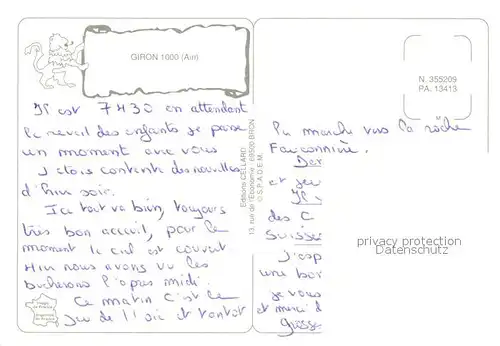 GIRON 1000 (Ain)
Il est 7 H 30 en attendant
le reveil des enfants je passe
un moment avec vous
J etais contente des nouvelles
d'hier soir.
Ici tout va bien, toujours
très bon accueil, pour le
moment le ciel est couvert
Hier nous avons vu les
bucherons l'apres midi.
Ce matin c'est le
jeu de l'oie et tantot
Editions CELLARD
13, rue de l'Économie - 69500 BRON
© S.P.A.D.E.M.
N. 355209
PA. 13413
la marche vers la roche
Fauconnière.
Der
et jeu
Il
des C
Suisse
j'esp
une bon
je vous
et merci d
Grosse
privacy protection
Datenschutz